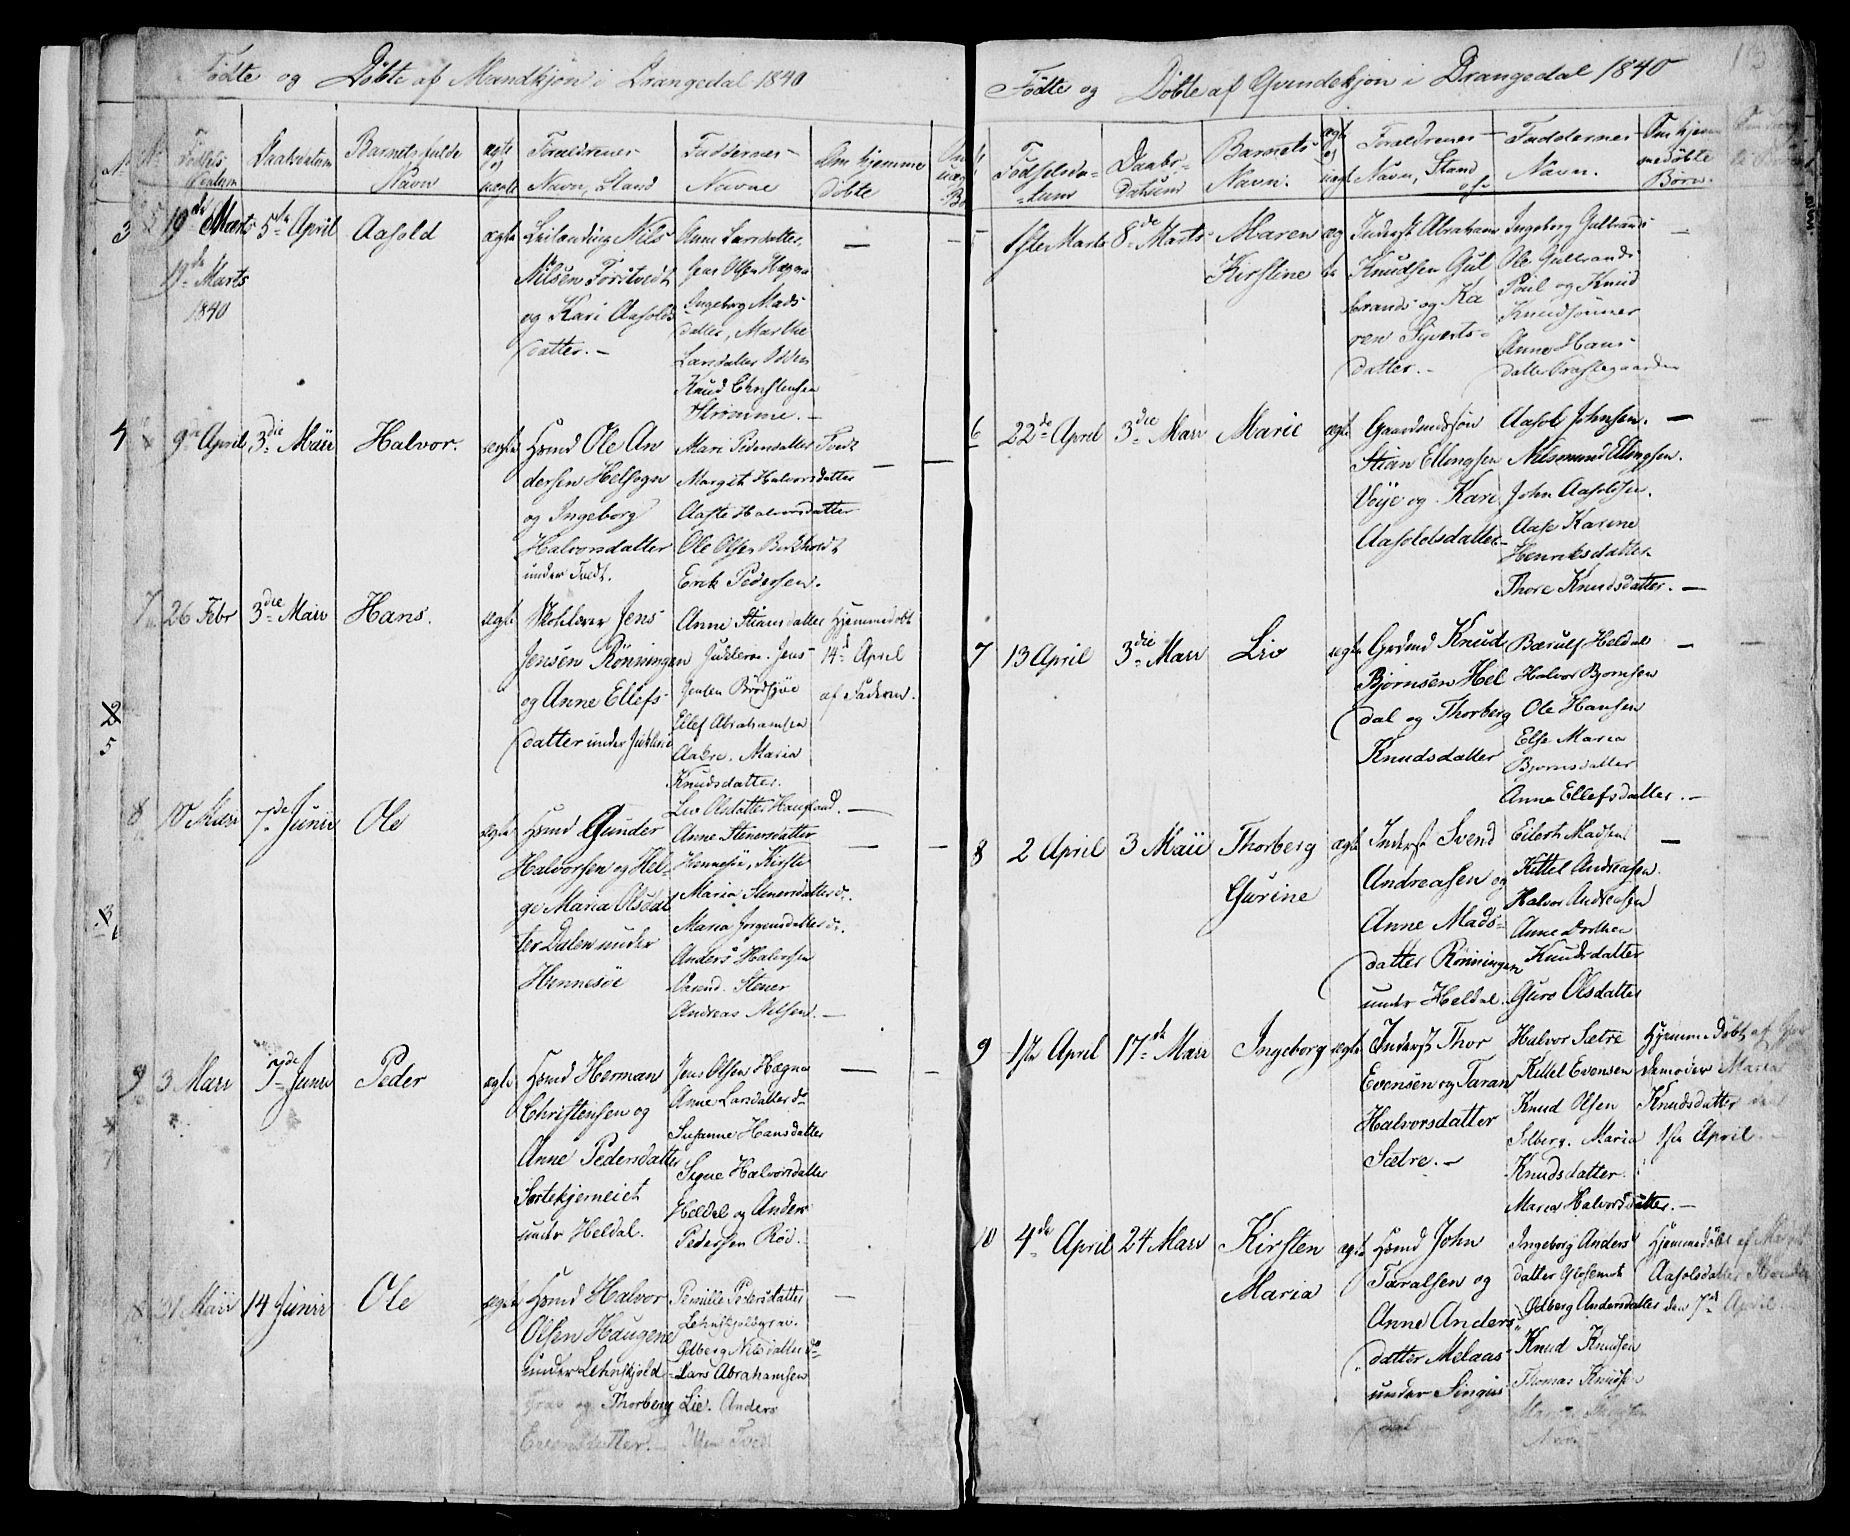 Fødte og Døbte af Mandkjøn i Drangedal 1840
No
Fødsels
Datum
Daabsdatum
Barnets fulde
Navn
ægte
og
uægte
Forældrenes
Navn, Stand
Faddernes
Navne
Om hjemme
døbte
3
19de Marts
19de Marts
1840
5te April
Aasold
ægte
Leilending Nils
Nilsen Torstvedt
og Kari Aasolds
datter. -
Anne Larsdatter,
Jens Olsen Hægna
Ingeborg Mads
datter, Marthe
Larsdatter
Knud Christensen
Strømme. -
-
4
9de April
3die Maii
Halvor.
ægte
Hsmd Ole An
dersen Helsogn
og Ingeborg
Halvorsdatter
under Tvedt.
Mari Pedersdatter Tvedt
Margit Halvorsdatter
Aaste Halvorsdatter
Ole Olsen
Erik Pedersen.
-
7
26 Febr
3die Maii
Hans.
ægte
Jens
Jensen Rönningen
og Anne Ellefs
datter under
Anne Stiansdatter
Jens
Jensen Brødsjøe
Ellef Abrahamsen
Aakre. Maria
Knudsdatter.
Hjemmedøbt
14d April
af Faderen.
2
5
8
10 Maii
7de Junii
Ole
ægte
Hsmd Gunder
Halvorsen og Hel-
ge Maria Olsdat
ter Dalen under
Hennesöe
Liv Olsdatter Haugland. -
Anne Stenersdatter
Hennesöe, Kirste
Maria Stenersdatter do.
Maria Jörgensdatter do.
Anders Halvorsen
Stener
Andreas Nilsen. -
-
9
3 Maii
7de Junii
Peder
ægte
Hsmd Herman
Christensen og
Anne Pedersdatter
Sortekjerneiet
under Heldal.
Jens Olsen Hægna
Anne Larsdatter do
Susanne Hansdatter
Signe Halvorsdatter
Heldal og Anders
Pedersen Röd. -
-
21 Maii
14 Junii
Ole
ægte
Hsmd Halvor
Olsen Haugene
under Lehnskjold
Grav og Thorberg
Evensdatter. -
Pernille Pedersdatter
Lehnskjoldgrav.
Odberg Nilsdatter do
Lars Abrahamsen
Lie. Anders
Olsen Tved
-
Fødte og Döbte af Qvindekjøn i Drangedal 1840
Födselsda-
tum
Daabs-
Datum
Barnets
Navn.
ægt
og
uægt
Forældrenes
Navn, Stand
Faddernes
Navn.
Om hjem
medøbte
Börn.
5
1ste Marts
8de Marts
Maren
Kirstine
æg
te
Inderst Abraham
Knudsen Gul
brands og Ka
ren Syverts-
datter. -
Ingeborg Gulbrands
Ole Gulbrands
Poul og Knud
Knudsönner
Anne Hans-
datter Præstegaarden
-
6
22de April
3die Maii
Marie
ægte
Gaardmandssön
Stian Ellingsen
Veije og Kari
Aasoldsdatter.
Aasol Johnsen.
Nilsmund Ellingsen.
John Aasoldsen.
Aase Karine
Henriksdatter
Thore Knudsdatter. -
-
7
13 April
3die Maii
Liv
ægte
Grdmd Knud
Björnsen Hel
dal og Thorberg
Knudsdatter
Bærulf Heldal
Halvor Bjornsen
Ole Hansen
Else Maria
Bjornsdatter
Anne Ellefsdatter. -
-
8
2 April
3 Maii
Thorberg
Gurine
ægte
Inderst Svend
Andreasen og
Anne Mads-
datter Rönningen
under Heldal.
Eilert Madsen
Kittel Andreasen.
Halvor Andreasen
Anne Dorthea
Knudsdatter
Guro Olsdatter
-
9
1ste April
17de Maii
Ingeborg
ægte
Inderst Thor
Evensen og Taran
Halvorsdatter
Sætre. -
Halvor Sætre
Kittel Evensen
Knud Olsen
Solberg. Maria
Knudsdatter
Maria Halvorsdatter. -
Hjemmedöbt af
Maria
Knudsdatter
1ste April -
10
4de April
24 Maii
Kirsten
Maria
ægte
Hsmd John
Taralsen og
Anne Anders
datter Melaas
under
Ingeborg Anders
datter
Odberg Andersdatter
Knud Knudsen
Thomas Knudsen
Hjemmedöbt af
Aasolsdatter
den 7de April